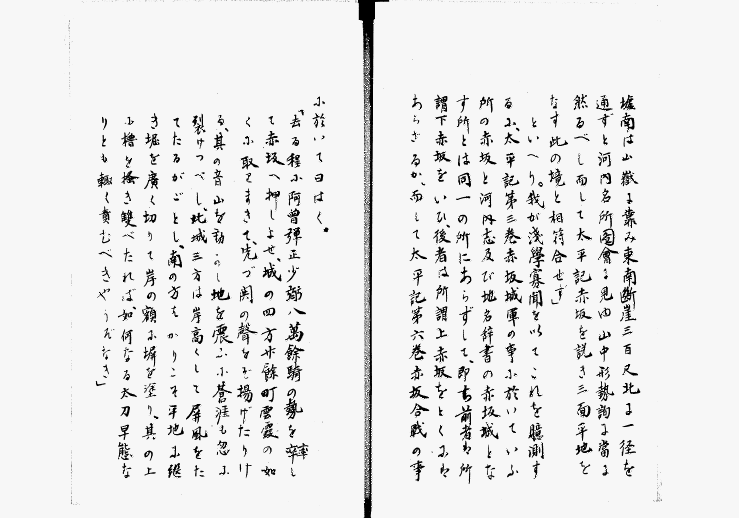 墟南は山嶽に靠み東南断崖三百尺北に一径を
通ずと河内名所圖會に見ゆ山中形勢詢に當に
然るべし而して太平記赤坂を説き三面平地を
なす此の境と相符合せず」
といへり。我が淺學寡聞を以てこれを臆測す
るに、太平記第三卷赤坂城軍の事に於いていふ
所の赤坂と河内志及び地名辞書の赤坂城とな
す所とは同一の所にあらずして、即ち前者は所
謂下赤坂をいひ、後者は所謂上赤坂をとくには
あらざるか、而して太平記第六卷赤坂合戦の事
に於いて曰はく。
「去る程に阿曾彈正少弼八萬餘騎の勢を率し
て赤坂へ押しよせ、城の四方廿餘町雲霞の如
くに取りまきて、先づ鬨の聲をぞ揚げたりけ
る、其の音山を動かし地を震ふに蒼涯も忽に
裂けつべし、此城三方は岸高くして屏風をた
てたるがごとし、南の方ばかりこそ平地に継
き堀を廣く切りて岸の額に塀を塗り、其の上
に櫓を掻き雙べたれば如何なる太刀早態な
りとも輙く責むべきやうぞなき」